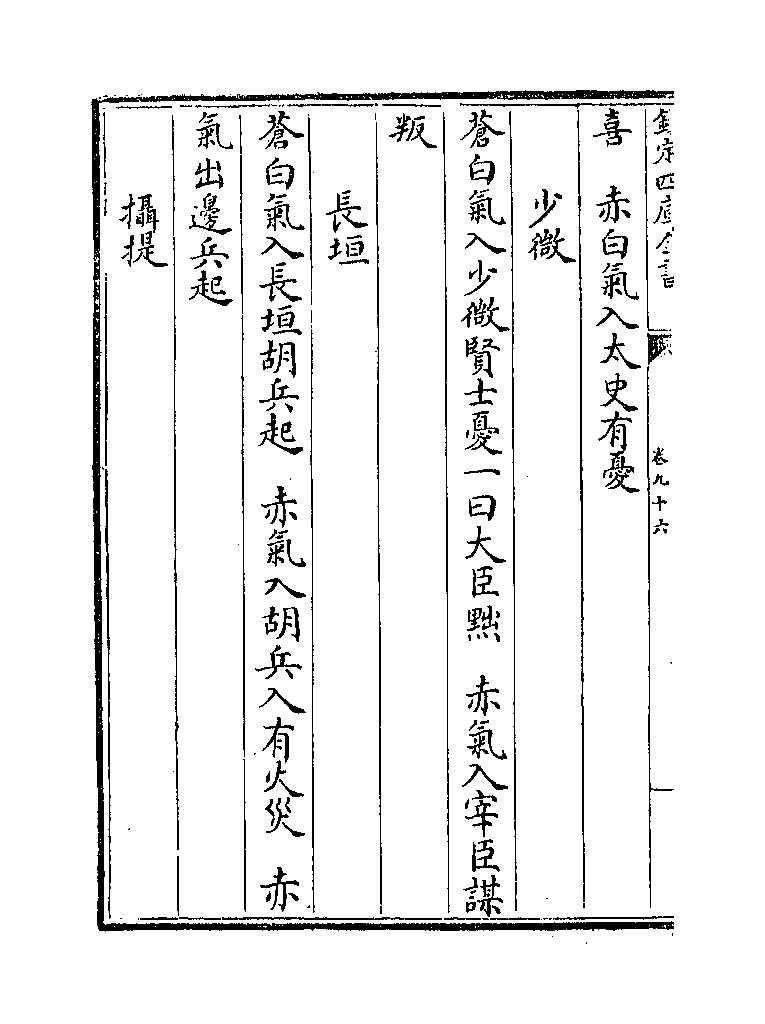 欽定四庫全書
卷九十六
喜　赤白氣入太史有憂
少微
蒼白氣入少微賢士憂一曰大臣黜　赤氣入宰臣謀
叛
長垣
蒼白氣入長垣胡兵起　赤氣入胡兵入有火災　赤
氣出邊兵起
攝提